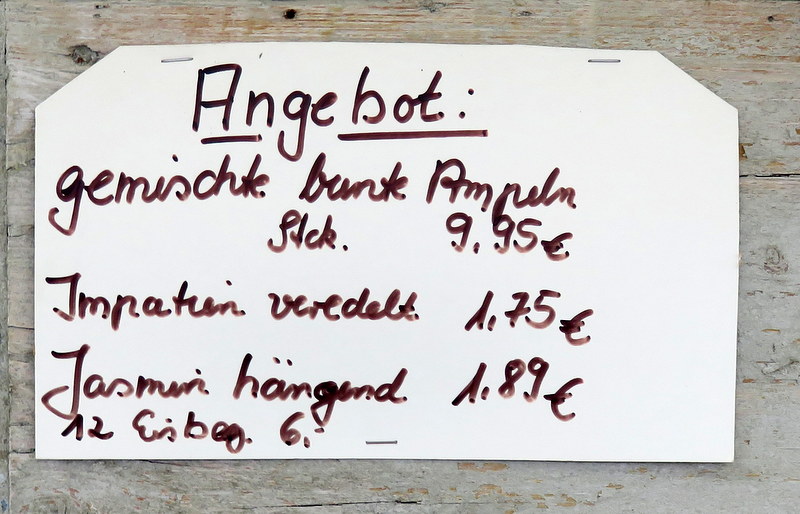 Angebot:
gemischte bunte Ampeln
Stck. 9,95 €
Impatien veredelt 1,75 €
Jasmin hängend 1,89 €
12 Eisbeg. 6,-